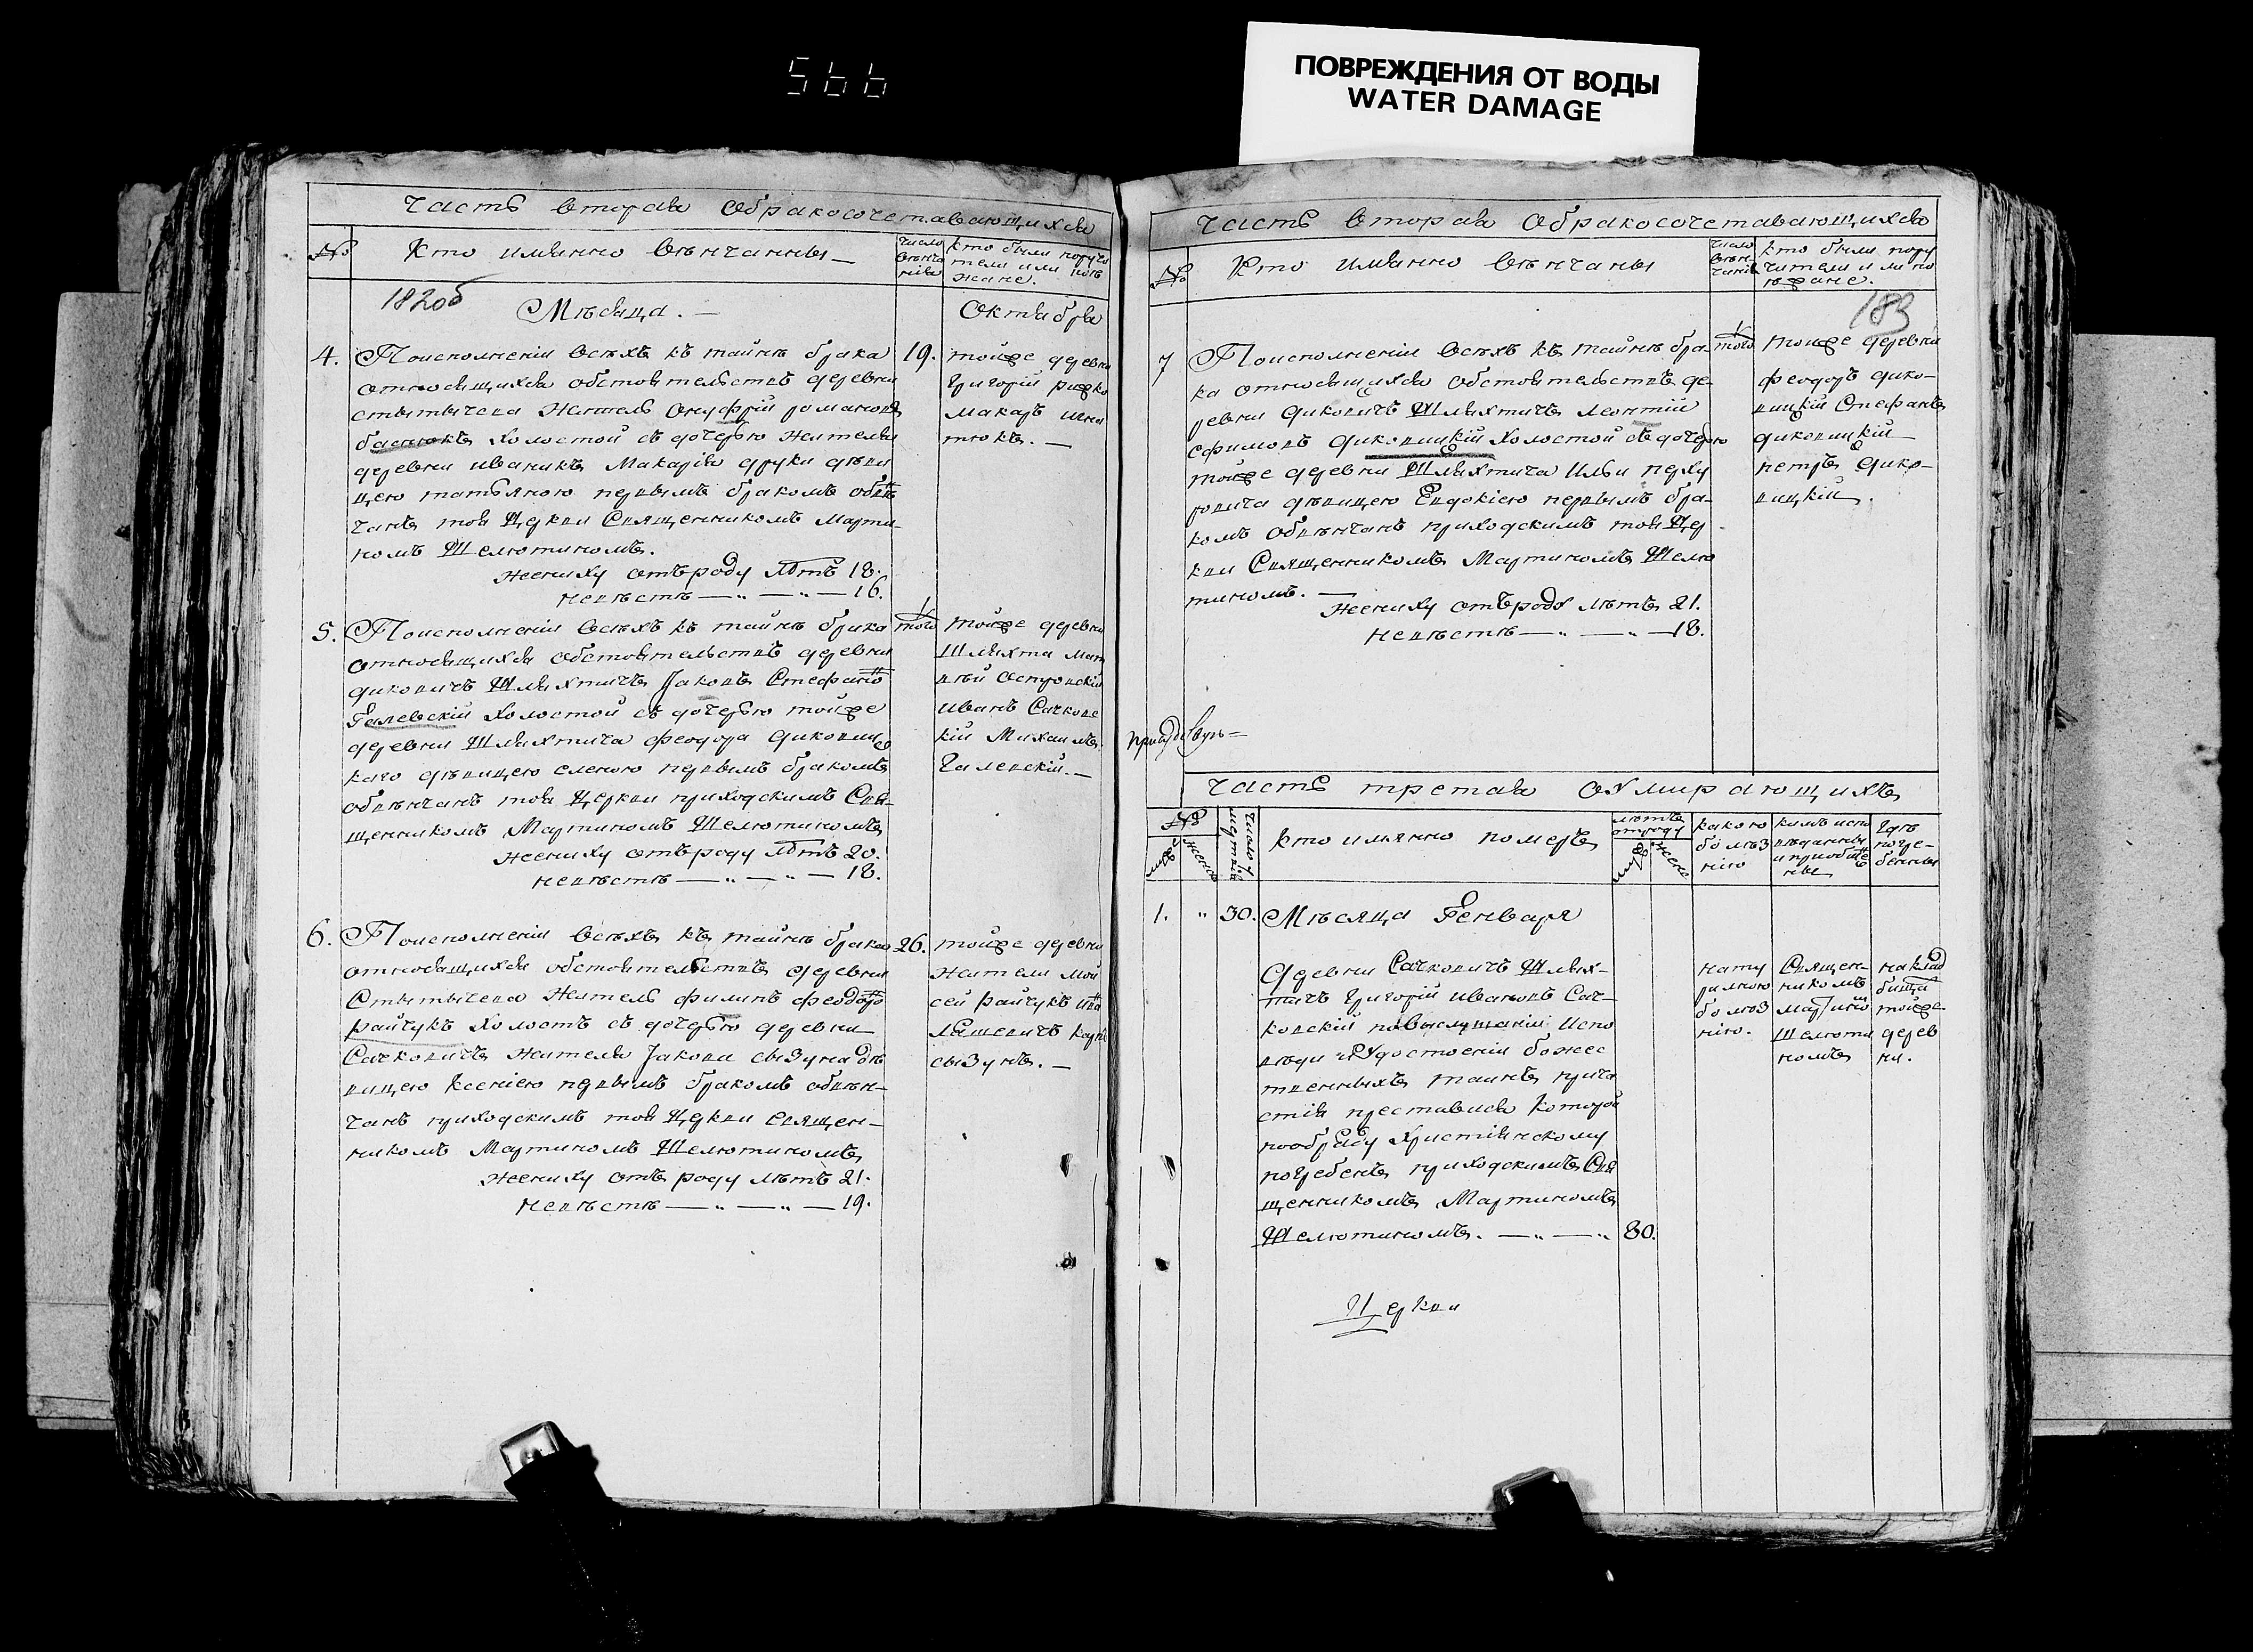 566
ПОВРЕЖДЕНИЯ ОТ ВОДЫ
WATER DAMAGE
Часть вторая обракосочетавающихся
№
Кто имянно венчанны
Число венча нія
Кто были поручи
тели или поѣ
жане.
1820б
Мѣсяца.
Октября
4.
По исполненіи всѣхъ къ тайнѣ брака
относящихся обстоятельствъ деревни
Житель Онуфрій романовъ
баснюкъ холостой съ дочерью жителя
деревни иваникъ Макарія друки дѣви
цею татьяною первымъ бракомъ обвѣ
чанъ той Церкви Священникомъ Марти-
номъ Шелютиномъ.
жениху отъ роду лѣтъ 18.
невѣстѣ — „ — „ — 16.
19.
тойже деревни
Григорій
Макаръ
5.
По исполненіи всѣхъ къ тайнѣ брака
относящихся обстоятельствъ деревни
диковичъ Шляхтичъ Іаковъ Стефано
Галевскій холостой съ дочерью тойже
деревни Шляхтича феодора диковиц
каго дѣвицею еленою первымъ бракомъ
обвѣнчанъ той Церкви приходскимъ Свя-
щенникомъ Мартиномъ Шелютиномъ
жениху отъ роду лѣтъ 20.
невѣстѣ — „ — „ — 18.
того
тойже деревни
Шляхта Мат
вѣй Островскій
иванъ Сачковс
кій Михаилъ
Галевскій.—
6.
По исполненіи всѣхъ къ тайнѣ брака
относящихся обстоятельствъ деревни
Житель филипъ феодоро
райчукъ холостъ съ дочерью деревни
Сачковичъ жителя Іакова сызуна дѣ
вицею ксеніею первымъ бракомъ обвѣн-
чанъ приходскимъ той Церкви священ-
никомъ Мартиномъ Шелютиномъ
жениху отъ роду лѣтъ 21.
невѣстѣ — „ — „ — 19.
26.
тойже деревни
жители мой
сей райчукъ
сызунъ.—
Часть вторая обракосочетавающихся
№
Кто имянно венчаны
Число венчанія
Кто были пору
чители или по
ѣжане.
183
7
По исполненіи всѣхъ къ тайнѣ бра-
ка относящихся обстоятельствъ де-
ревни диковичъ Шляхтичъ леонтій
ефимовъ диковицкій холостой съ дочерю
тойже деревни Шляхтича Ильи перху
ровича дѣвицею Евдокіею первымъ бра-
комъ обвѣнчанъ приходскимъ той Цер
кви Священникомъ Мартиномъ Шелю
тиномъ. —
жениху отъ роду лѣтъ 21.
невѣстѣ — „ — „ — 18.
того
тойже деревни
феодоръ дико-
вицкій Стефанъ
диковицкій
петръ дико-
вицкій.
Часть третая о умирающихъ
№
муже
женс
число умертвій
кто имянно померъ
лѣтъ
отроду
муж
женс
какою
болѣз
нію
кѣмъ испо
вѣданны
и приобще
ны
гдѣ
погре-
бенны
1.
„
30.
Мѣсяца Генваря
деревни Сачковичъ Шлях-
тичъ Григорій ивановъ Сач-
ковскій испо
вѣди и удостоеніи божес
твенныхъ таинъ прича
стія преставися который
пообряду Христіянскому
погребенъ приходскимъ Свя
щенникомъ Мартиномъ
Шелютиномъ. — „ — „
80.
нату
ралною
болѣз
нію.
Священ-
никомъ
Мартино
Шелюти
номъ
наклад
бищи
тойже
дерев
ни.
Церкви